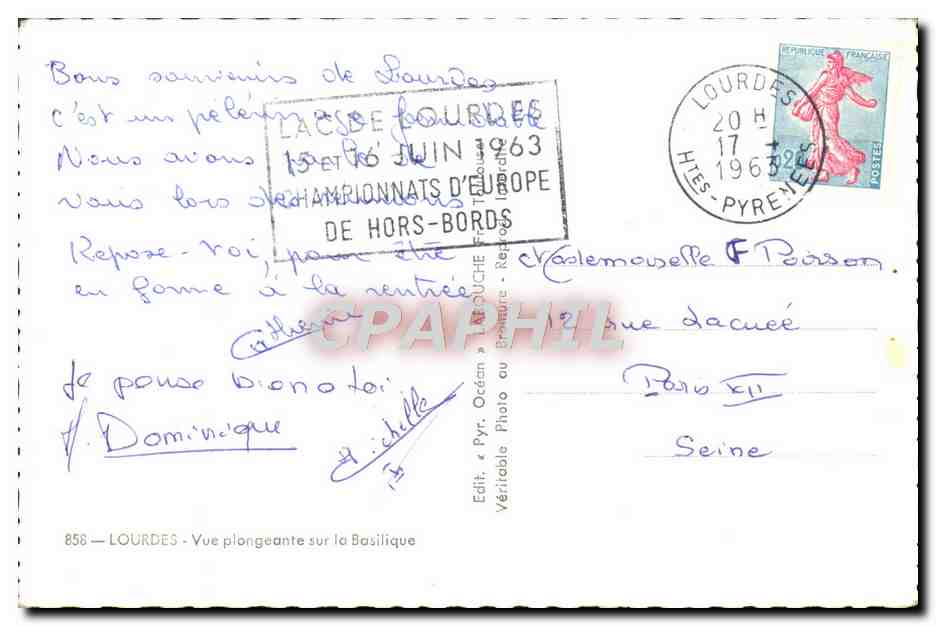 Bons souvenirs de Lourdes
c'est un pélérinage
Nous avons
vous lors des
Repose-toi, pour être
en forme à la rentrée
Catherine
Je pense bien a toi
Dominique
Michelle
LAC DE LOURDES
15 ET 16 JUIN 1963
CHAMPIONNATS D'EUROPE
DE HORS-BORDS
LOURDES
20 H
17 - *
1963
HTES-PYRENEES
REPUBLIQUE FRANÇAISE
POSTES
Mademoiselle F Poisson
12 rue Lacuée
Paris XII
Seine
Edit. « Pyr. Océan » LABOUCHE Frs Toulouse
Véritable Photo au Bromure - Reprod. Interdite
CPAPHIL
858 — LOURDES - Vue plongeante sur la Basilique